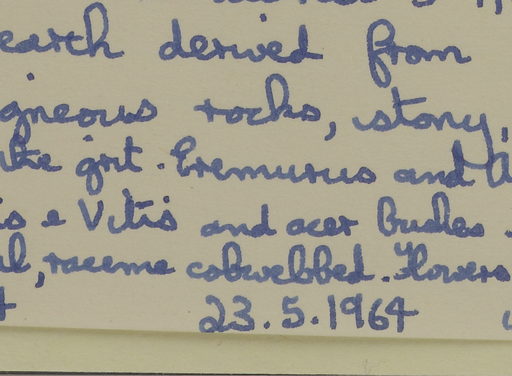 earth derived from
igneous rocks, stony,
like grit. Eremurus and
is & Vitis and acer
raceme cobwebbed. Flowers
23.5.1964